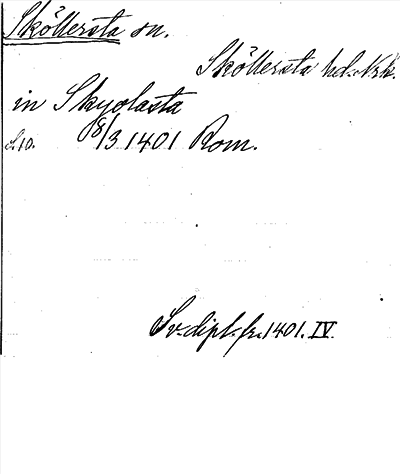 Sköllersta sn.
Sköllersta hd. Nrk.
in Skyolasta
8/3 1401 Rom.
Sv. dipl. fr. 1401. IV.